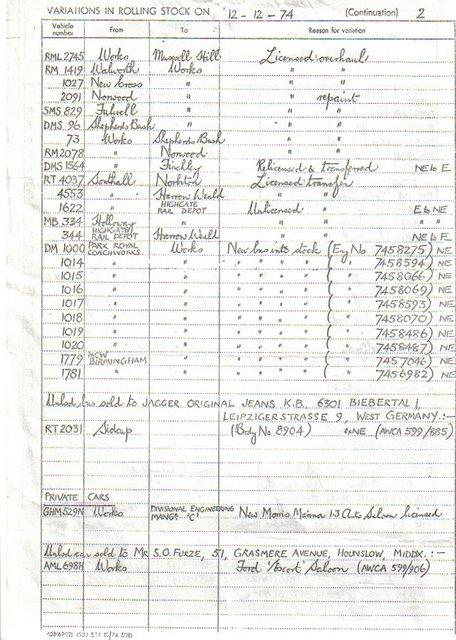 VARIATIONS IN ROLLING STOCK ON 12-12-74 (Continuation) 2
Vehicle number From To Reason for variation
RML 2745 Works Muswell Hill Licensed overhaul
RM 1419 Walworth Works " "
1027 New Cross " " "
2091 Norwood " " repaint
SMS 829 Fulwell " " "
DMS 96 Shepherds Bush " " "
73 Works Shepherds Bush " "
RM 2078 " Norwood " "
DMS 1564 " Finchley Relicensed & transferred NE to E
RT 4037 Southall Norbiton Licensed transfer
4553 " Harrow Weald " "
1622 " HIGHGATE RAIL DEPOT Unlicensed E to NE
MB 334 Holloway " " " "
344 HIGHGATE RAIL DEPOT Harrow Weald " NE to E
DM 1000 PARK ROYAL COACHWORKS Works New bus into stock (Eng No 7458275) NE
1014 " " " " " " ( " 7458594) NE
1015 " " " " " " ( " 7458066) NE
1016 " " " " " " ( " 7458069) NE
1017 " " " " " " ( " 7458593) NE
1018 " " " " " " ( " 7458070) NE
1019 " " " " " " ( " 7458486) NE
1020 " " " " " " ( " 7458487) NE
1779 MCW BIRMINGHAM " " " " " ( " 7457046) NE
1781 " " " " " " ( " 7456982) NE
Unlcd bus sold to JAGGER ORIGINAL JEANS K.B., 6301 BIEBERTAL 1,
LEIPZIGERSTRASSE 9, WEST GERMANY. :—
RT 2031 Sidcup (Body No 8904) NE (AWCA 599/885)
PRIVATE CARS
GHM 529N Works DIVISIONAL ENGINEERING MANGR 'C' New Morris Marina 1·3 Auto Saloon licensed
Unlcd car sold to Mr S.O. FURZE, 51, GRASMERE AVENUE, HOUNSLOW, MIDDX. :—
AML 698H Works Ford 'Escort' Saloon (AWCA 599/906)